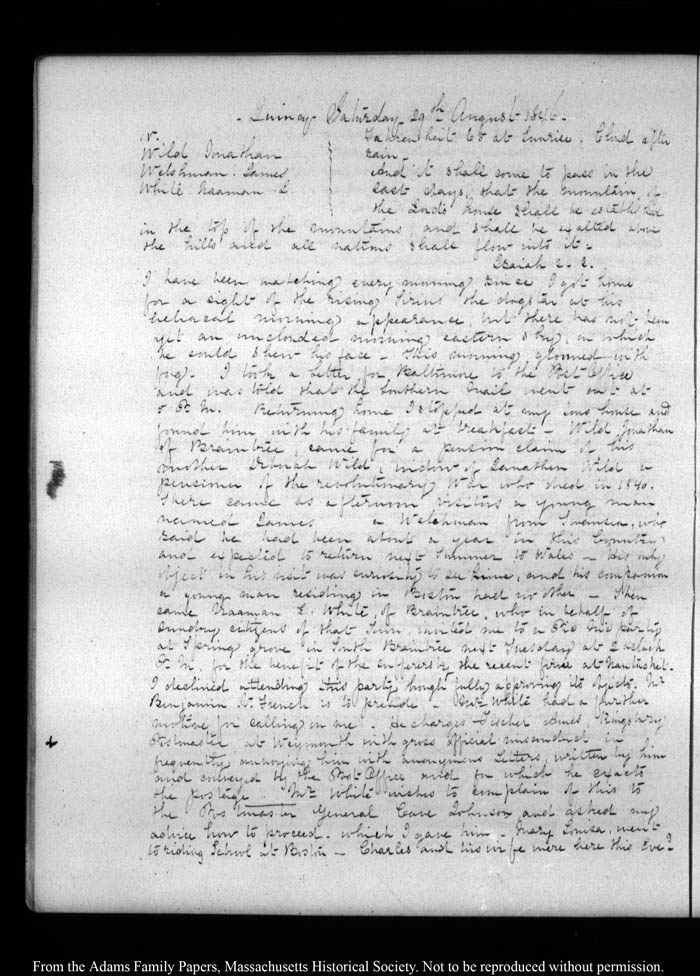 Quincy Saturday 29th August 1846.
IV.
Wild Jonathan
Welshman James
White Naaman L
Fahrenheit 65 at Sunrise. Cloud after
rain
And it shall come to pass in the
last days, that the mountain of
the Lord's house shall be established
in the top of the mountains, and shall be exalted above
the hills and all nations shall flow into it.
Isaiah 2. 2.
I have been watching every morning since I got home
for a sight of the rising Sirius the dogstar at his
heliacal morning appearance, but there has not been
yet an unclouded morning eastern sky, in which
he could shew his face - This morning gloomed with
fog. I took a Letter for Baltimore to the Post Office
and was told that the Southern Mail went out at
5 P.M. Returning home I stopped at my Sons house and
found him with his family at breakfast - Wild Jonathan
of Braintree, came for a pension claim of his
mother Deborah Wild, widow of Jonathan Wild a
pensioner of the revolutionary War who died in 1840.
There came as afternoon visitors a young man
named James a Welchman from Swansea, who
said he had been about a year in this Country
and expected to return next Summer to Wales - His only
object in his visit was curiosity to see me, and his companion
a young man residing in Boston had no other - Then
came Naaman L. White, of Braintree, who in behalf of
sundry citizens of that Town, invited me to a Pic Nic party
at Spring grove in South Braintree next Tuesday at 2 o'clock
P.M. for the benefit of the sufferers by the recent fire at Nantucket.
I declined attending this party though fully approving its objects. Mr
Benjamin V. French is to preside - Mr White had a further
motive for calling on me. He charges Fischer Ames Kingsbury
Postmaster at Weymouth with gross official misconduct in
frequently annoying him with anonymous Letters, written by him
and conveyed by the Post Office and for which he exacts
the postage. Mr White wishes to complain of this to
the Postmaster General Cave Johnson and asked my
advice how to proceed. which I gave him - Mary Louisa, went
to riding School at Boston - Charles and his wife were here this Eve.g
+
From the Adams Family Papers, Massachusetts Historical Society. Not to be reproduced without permission.